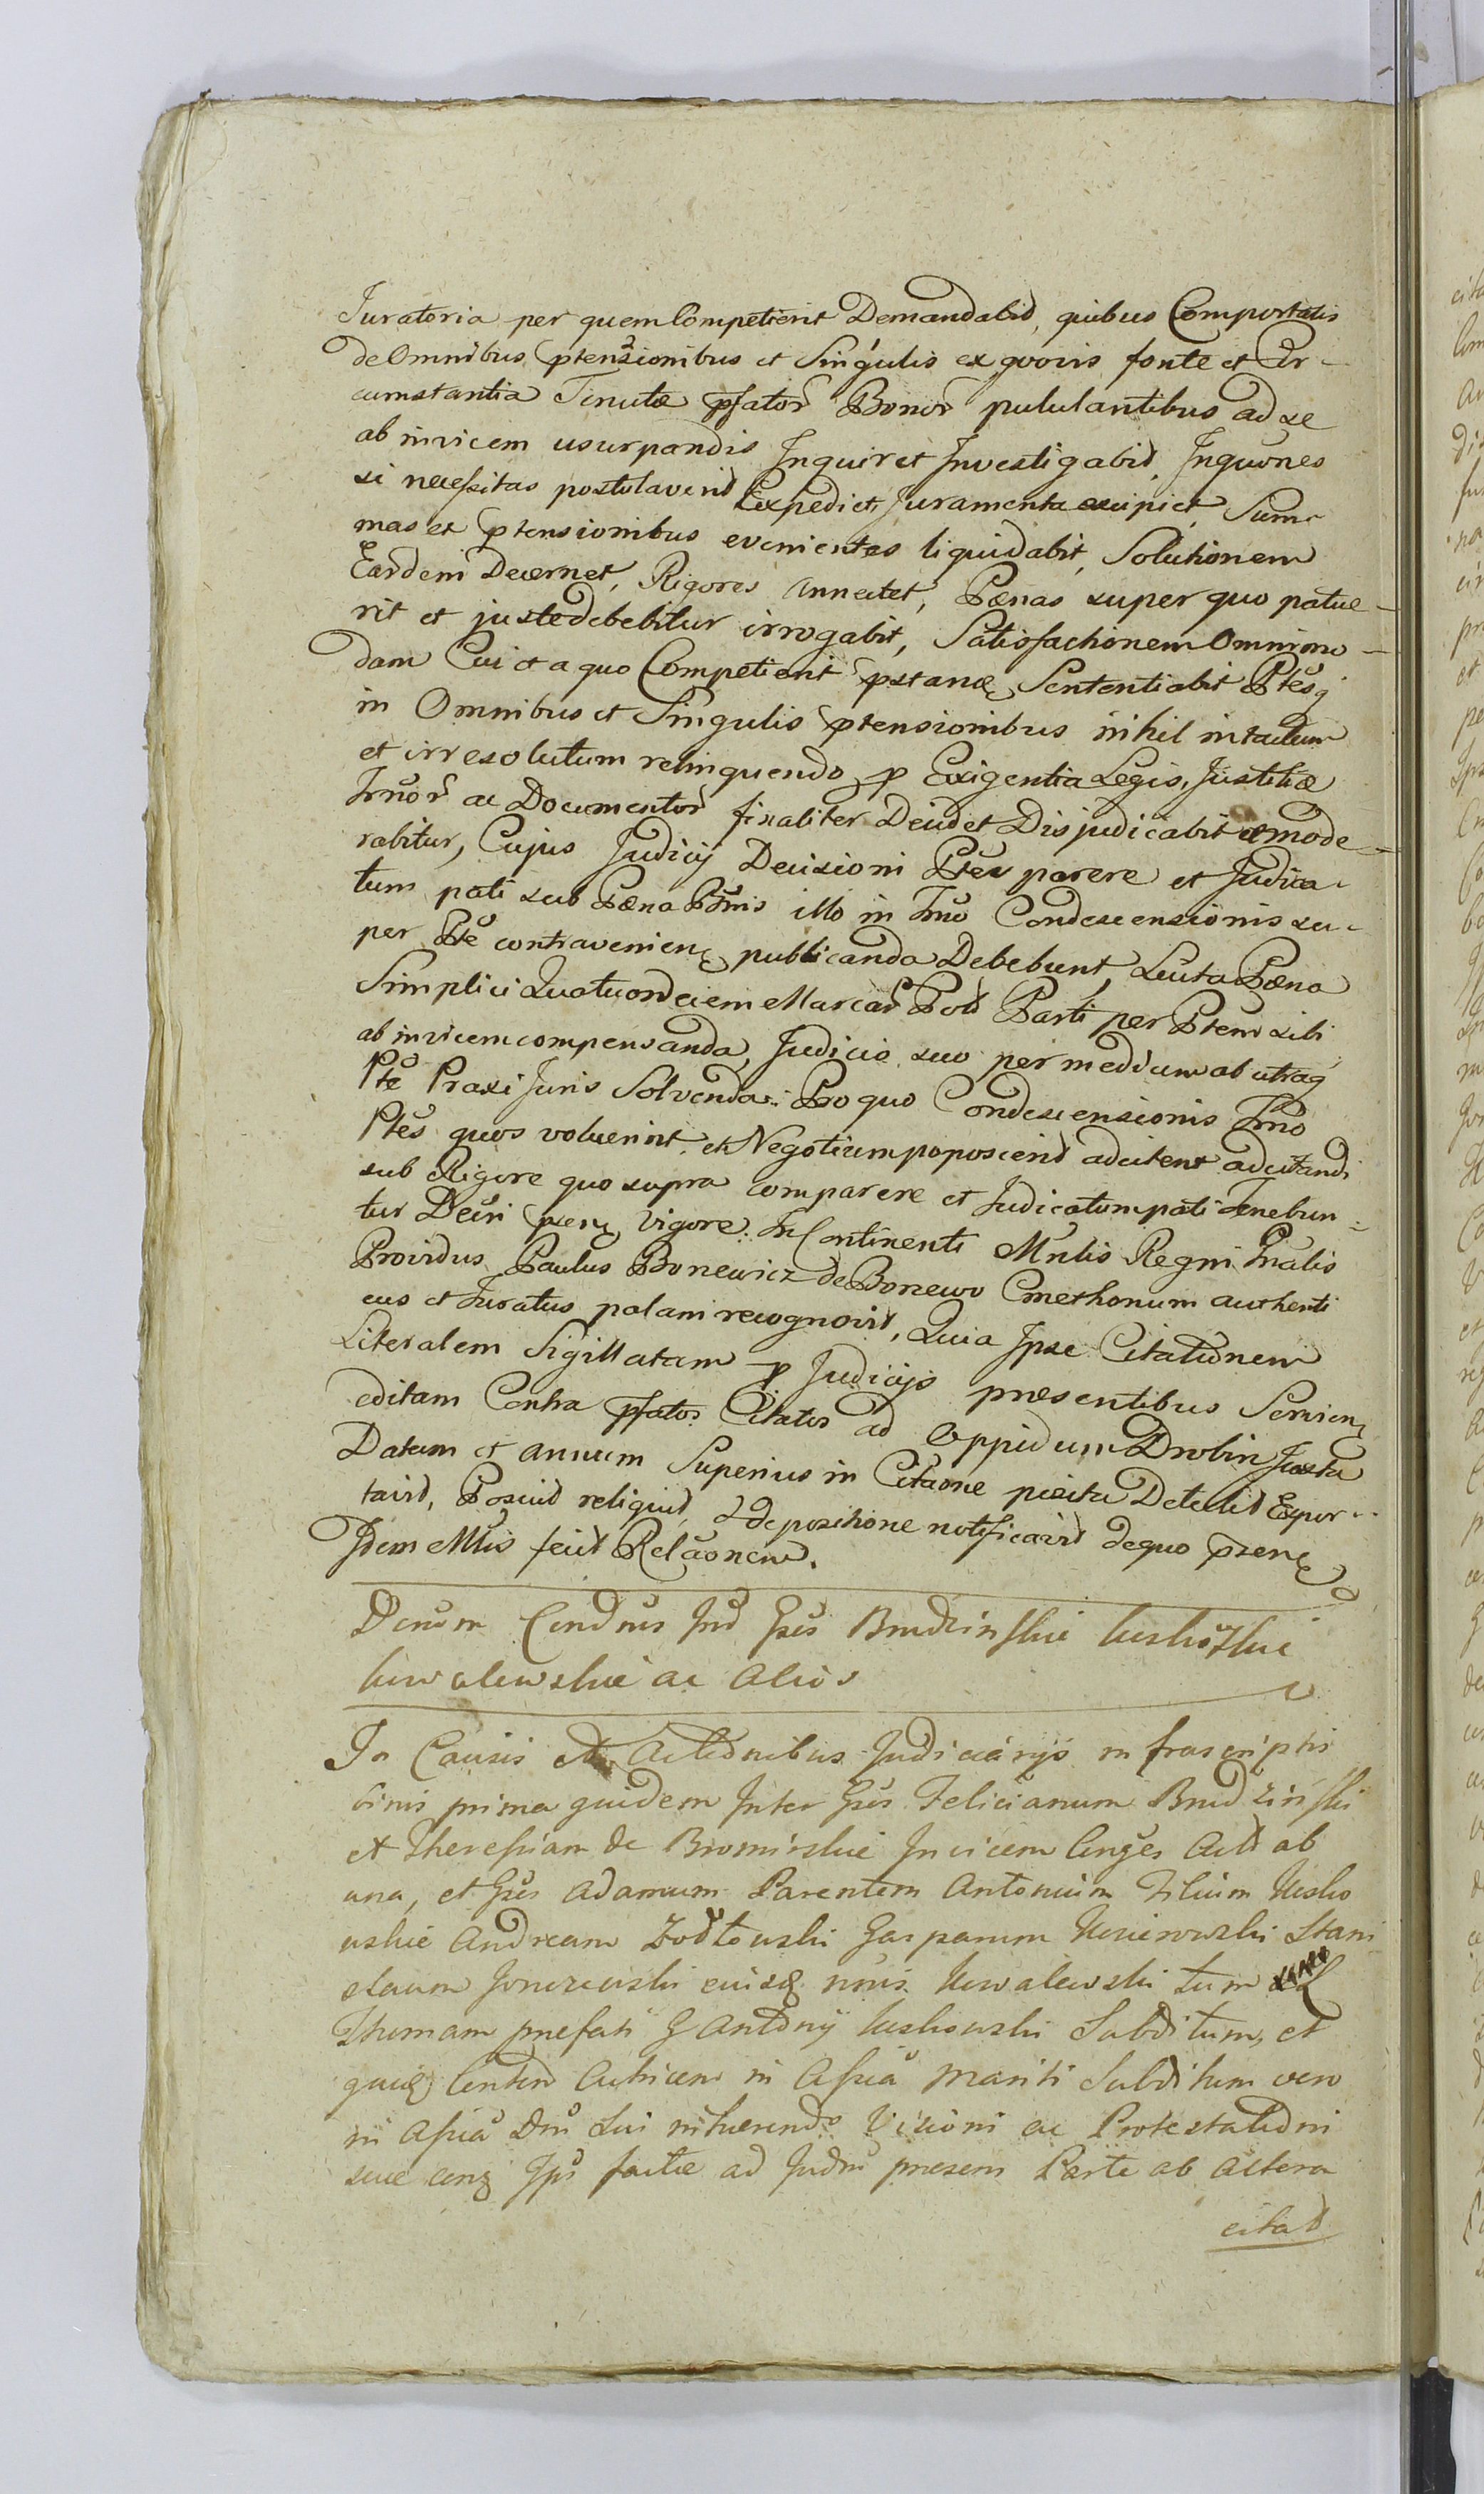 Juratoria per quem Competierit Demandabit, quibus Comportatis
de Omnibus ptensionibus et Singulis ex quovis fonte et Cir-
cumstantia Tenutæ pfator Bonor pululantibus ad se
ab invicem usurpandis Inquiret Investigabit, Inquõnes
si necessitas postulaverit Expediet, Juramenta excipiet, Sum-
mas ex ptensionibus evenientes liquidabit, Solutionem
Eardem Decernet, Rigores annectet, Pænas super quo patue-
rit et juste debebitur irrogabit, Satisfactionem Omnimo-
dam Cui et a quo Competierit pstanæ Sententiabit Ptesq
in Omnibus et Singulis ptensionibus nihil intactum
et irresolutum relinquendo p Exigentia Legis, Justitiæ
Jurior ac Documentor finaliter Decidet Disjudicabit et mode-
rabitur, Cujus Judicij Decisioni Ptes parere et Judica-
tum pati sub Pæna Bñnis illo in Tno Condescensionis su-
per Pte contravenien publicanda Debebunt, Luita Pæna
Simplici Quatuordeciem Marcar Pol Parti per Ptem sibi
ab invicem compensanda, Judicio suo per medium ab utraq
Pte Praxi Juris Solvenda. Pro quo Condescensionis Tno
Ptes quos voluerint et Negotium poposcerit adcitent adcitandi
sub Rigore quo supra comparere et Judicatum pati Tenebun-
tur Decri psen vigore. In Continenti Mnlis Regni Gnalis
Providus Paulus Bonewicz de Bonewo Cmethonum authenti
cus et Juratus palam recognovit, Quia Ipse Citationem
Literalem Sigillatam p Judicijs præsentibus Servien
editam Contra pfatos Citatos ad Oppidum Drobin Juxta
Datam et annum Superius in Citaone picita Detulit Expor-
tavit, Posuit reliquit, et depositione notificavit de quo psen
Idem Mlis fecit Relãonem.
Decum Cond Ind Gses Brudzinskie
Kowalewskie ac Alios
In Causis et Actionibus Judiciarijs infrascriptis
vinis prima quidem Inter Gses Felicianum Brudzinski
et Theressiam de Bromirskie Invicem Conges Act ab
una, et Gses Adamum Parentem Antonium Filium
Andream Zodtowski Gasparum Stani
slaum Kowalewski tum et
Thomam prefati G Antonij Subditum, et
Actricem in Assia Mariti Subditum vero
in Assia Dni Sui inhærendo Visioni ac Protestationi
suæ facta ad præsens Parte ab altera
citat